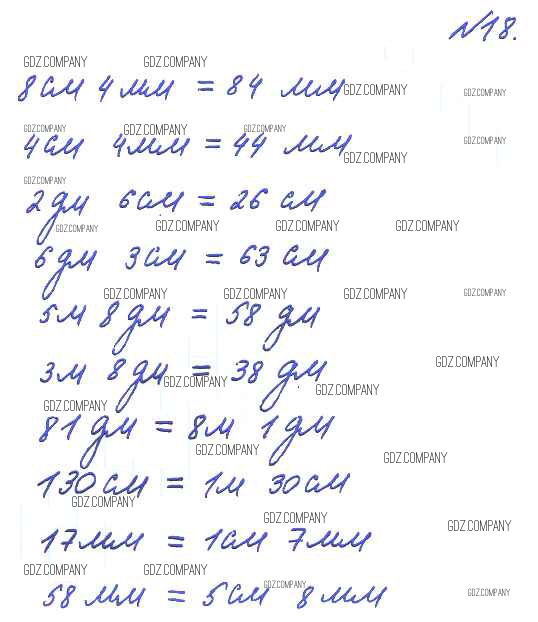 №18.
GDZ.COMPANY GDZ.COMPANY
8 см 4 мм = 84 мм GDZ.COMPANY GDZ.COMPANY
GDZ.COMPANY GDZ.COMPANY GDZ.COMPANY GDZ.COMPANY
4 см 4 мм = 44 мм GDZ.COMPANY
GDZ.COMPANY
2 дм 6 см = 26 см
GDZ.COMPANY GDZ.COMPANY GDZ.COMPANY GDZ.COMPANY
6 дм 3 см = 63 см
GDZ.COMPANY GDZ.COMPANY GDZ.COMPANY GDZ.COMPANY
5 м 8 дм = 58 дм
GDZ.COMPANY
3 м 8 дм = 38 дм
GDZ.COMPANY GDZ.COMPANY
GDZ.COMPANY
81 дм = 8 м 1 дм
GDZ.COMPANY GDZ.COMPANY
130 см = 1 м 30 см
GDZ.COMPANY
GDZ.COMPANY GDZ.COMPANY
17 мм = 1 см 7 мм
GDZ.COMPANY GDZ.COMPANY GDZ.COMPANY GDZ.COMPANY
58 мм = 5 см 8 мм